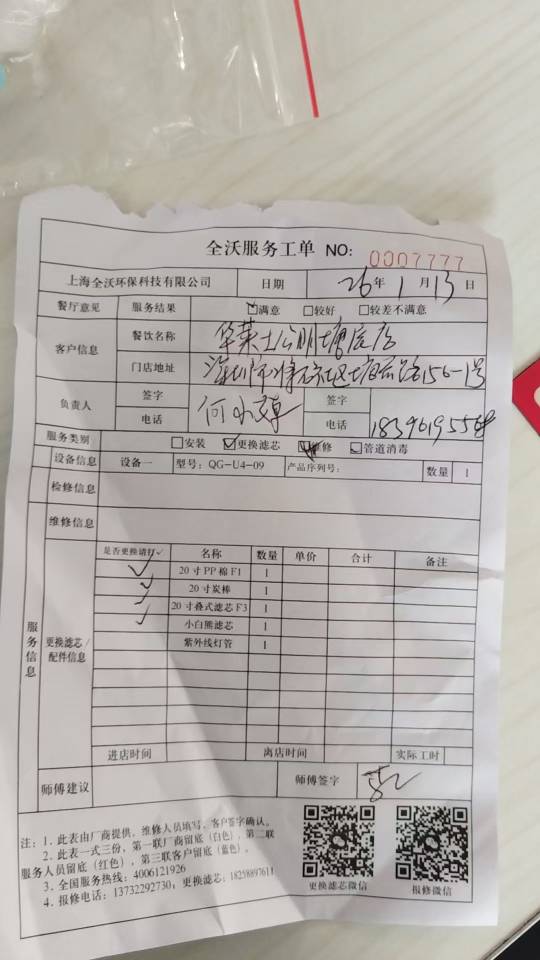 全沃服务工单 NO: 0007777
上海全沃环保科技有限公司 日期 26年1月13日
餐厅意见 服务结果 ☑满意 □较好 □较差不满意
客户信息 餐饮名称 华莱士公明塘尾店
门店地址 深圳市 塘尾 156-1号
负责人 签字 何小 签字
电话 电话
服务类别 □安装 ☑更换滤芯 维修 ☑管道消毒
设备信息 设备一 型号: QG-U4-09 产品序列号: 数量 1
检修信息
维修信息
服务信息
更换滤芯/配件信息
是否更换请打✓ 名称 数量 单价 合计 备注
✓ 20寸PP棉F1 1
✓ 20寸炭棒 1
✓ 20寸叠式滤芯F3 1
✓ 小白熊滤芯 1
紫外线灯管 1
进店时间 离店时间 实际工时
师傅建议 师傅签字
注: 1. 此表由厂商提供, 维修人员填写, 客户签字确认。
2. 此表一式三份, 第一联厂商留底 (白色), 第二联
服务人员留底 (红色), 第三联客户留底 (蓝色)。
3. 全国服务热线: 4006121926
4. 报修电话: 13732292730, 更换滤芯: 18258897611
更换滤芯微信 报修微信